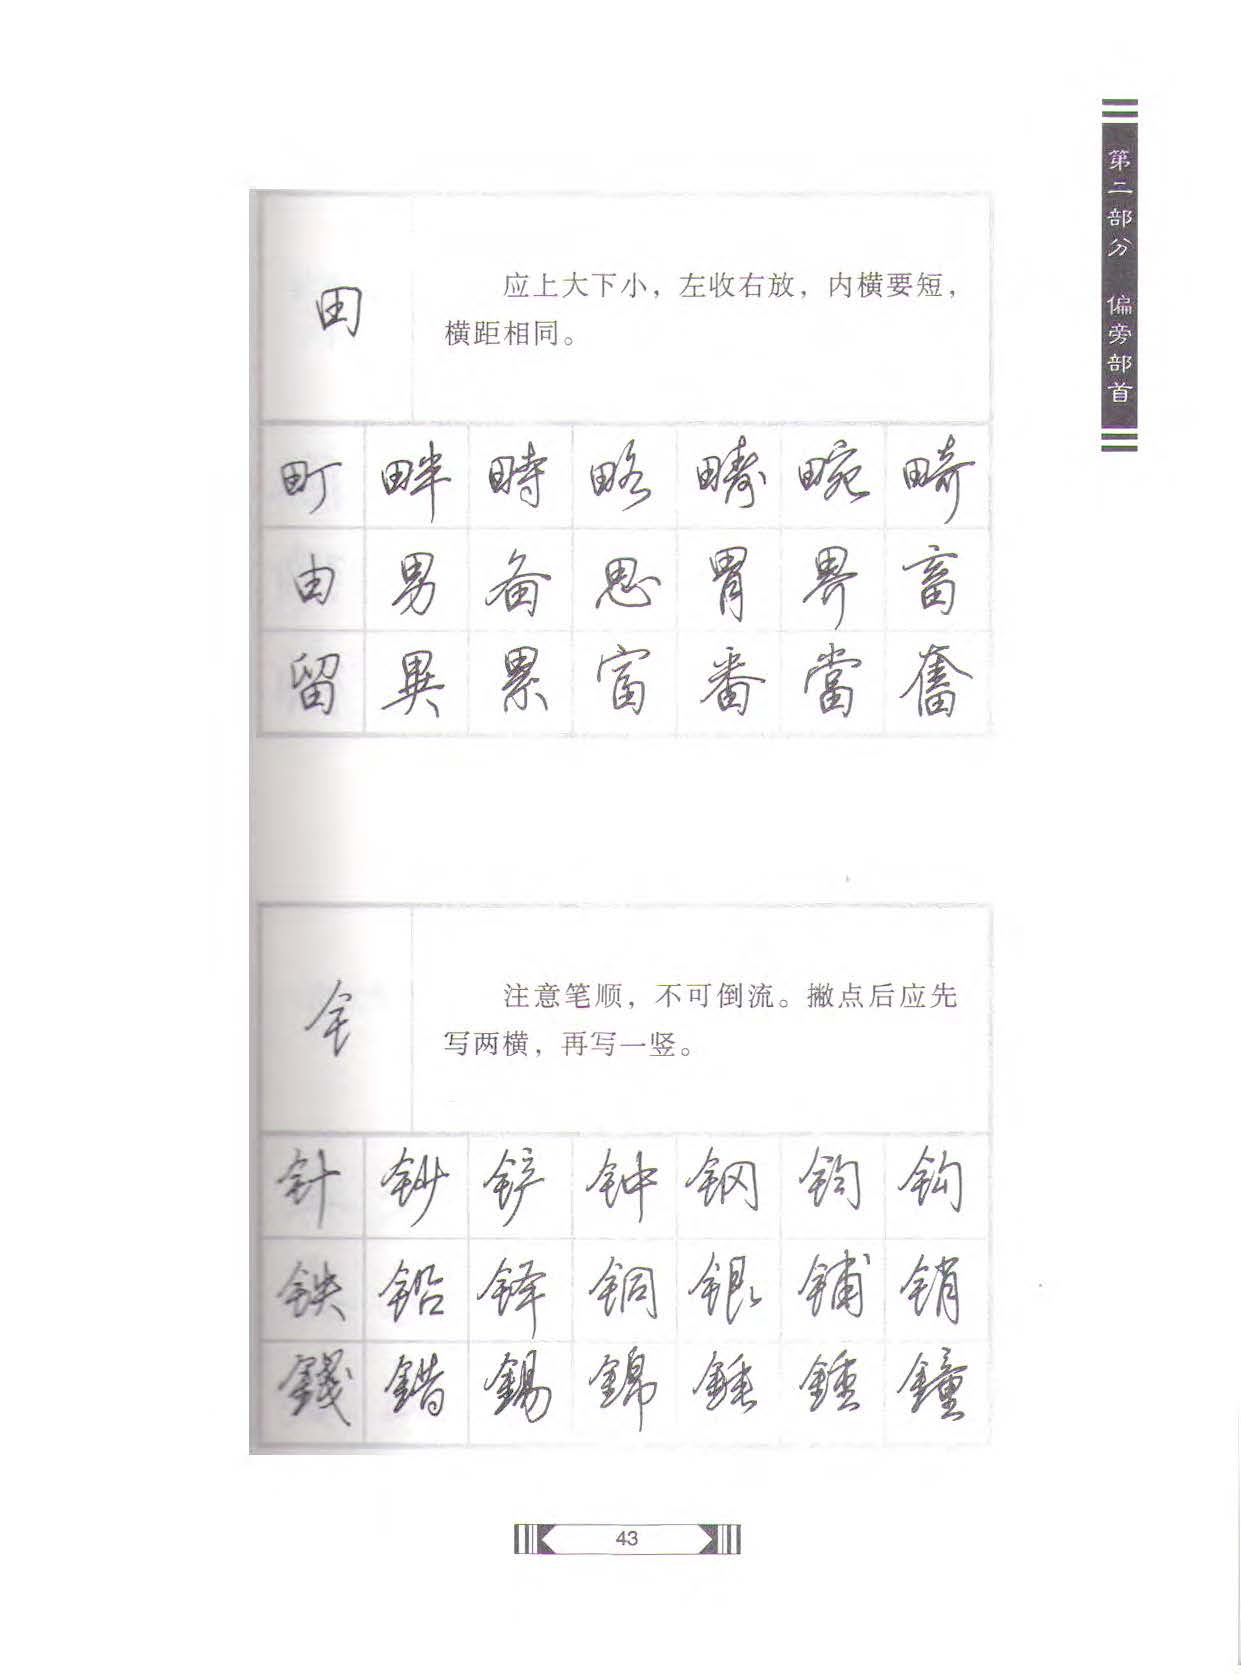 第二部分 偏旁部首
田
应上大下小，左收右放，内横要短，
横距相同。
町 畔 畤 略 畴 畹 畸
由 男 备 思 胃 界 畜
留 異 累 富 番 當 奮
钅
注意笔顺，不可倒流。撇点后应先
写两横，再写一竖。
针 钞 铲 钟 钢 钧 钩
铁 铅 铎 铜 银 铺 销
錢 錯 錫 錦 錘 鐘
43